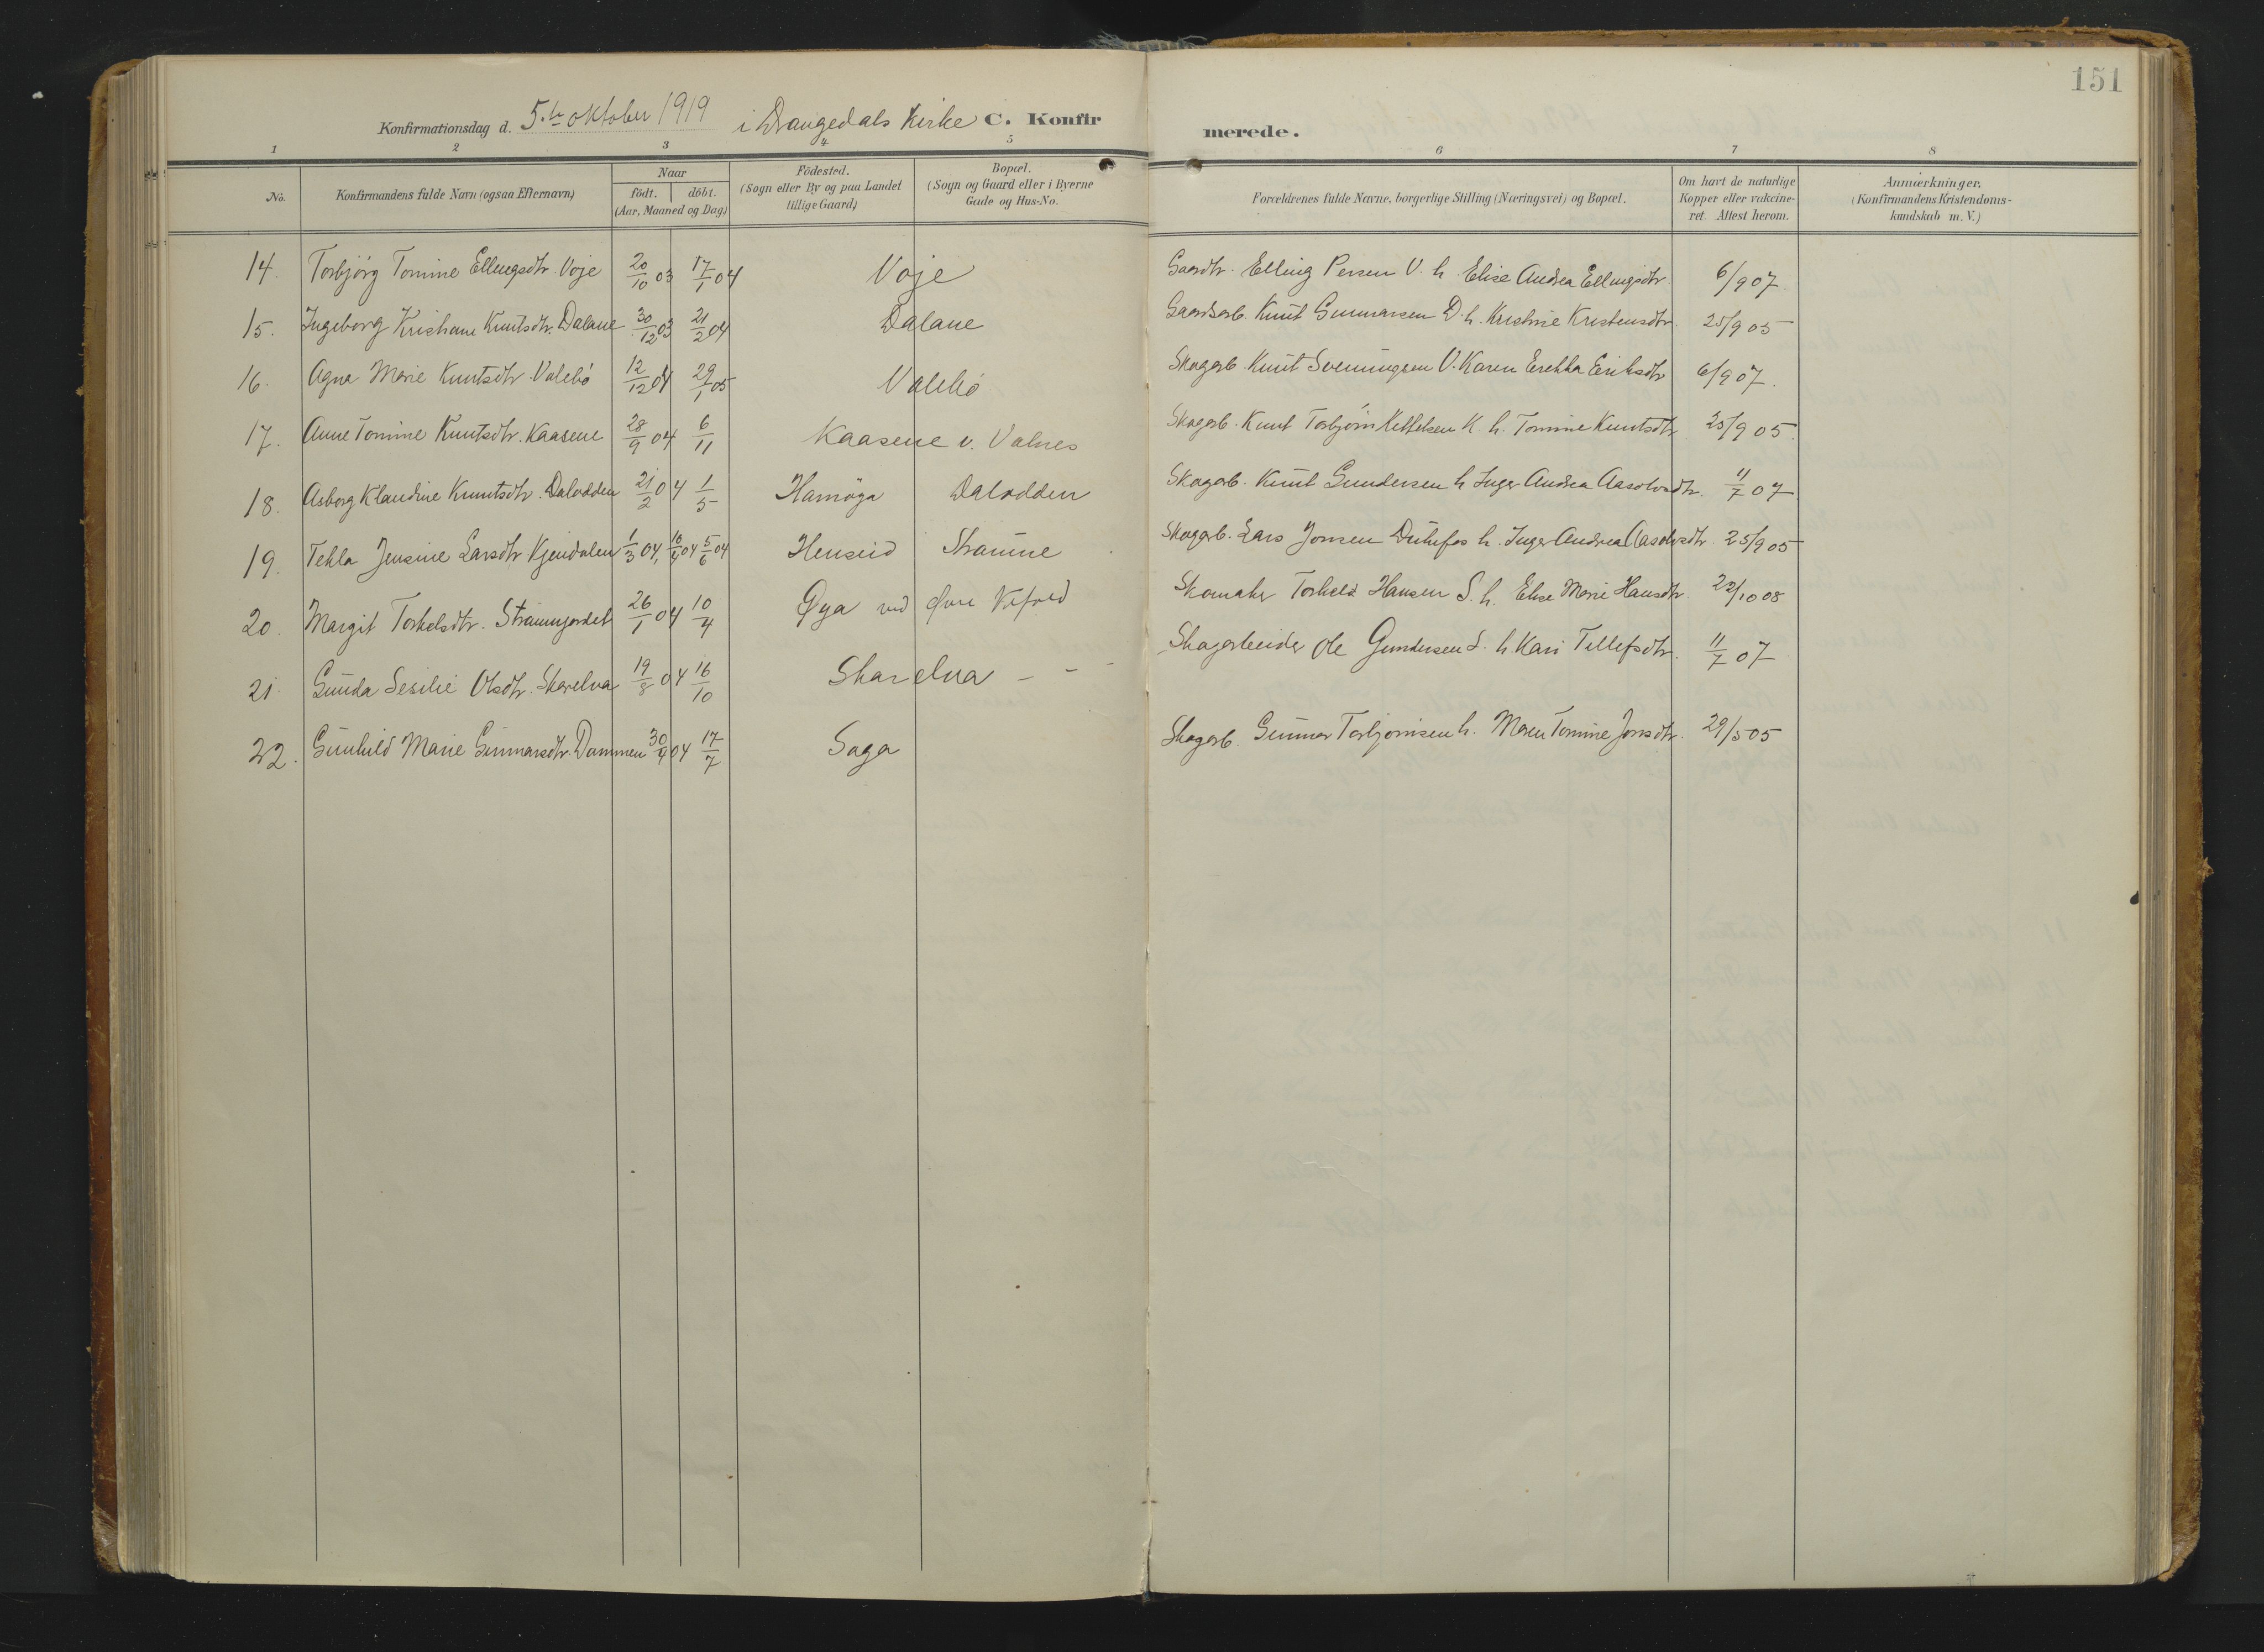 151
Konfirmationsdag d. 5.te oktober 1919 i Drangedals Kirke C. Konfirmerede.
1 2 3 4 5 6 7 8
No. Konfirmandens fulde Navn (ogsaa Efternavn) Naar födt. döbt. (Aar, Maaned og Dag) Födested. (Sogn eller By og paa Landet tillige Gaard) Bopæl. (Sogn og Gaard eller i Byerne Gade og Hus-No. Forældrenes fulde Navne, borgerlige Stilling (Næringsvei) og Bopæl. Om havt de naturlige Kopper eller vakcineret Attest herom. Anmærkninger, (Konfirmandens Kristendomskundskab m. V.)
14. Torbjörg Tomine Ellingsdtr. Voje 20/10 03 17/1 04 Voje Gaardtr. Elling Persen V. h. Elise Andrea Ellingsdtr. 6/9 07.
15. Ingeborg Kristiane Knutsdtr. Dalane 30/12 03 21/2 04 Dalane Gaardarb. Knut Gunnarsen D. h. Kristine Kristensdtr. 25/9 05
16. Agna Marie Knutsdtr. Valebö 12/12 04 29/1 05 Valebö Skogarb. Knut Sveinungsen V. Karen Eriksdtr 6/9 07.
17. Anne Tomine Knutsdtr. Kaasene 28/9 04 6/11 Kaasene v. Valnes Skogarb. Knut Torbjörn Kettelsen K. h. Tomine Knutsdtr 25/9 05.
18. Asborg Klaudine Knutsdtr. Dalodden 21/2 04 1/5 Hamöga Dalodden Skogarb. Knut Gundersen h Inger Andrea Aasolvsdtr. 11/7 07
19. Tekla Jensine Larsdtr Kjendalen 1/3 04, 16/4 04 5/6 04 Henseid Straume Skogarb. Lars Jonsen h. Inger Andrea Aasolvsdtr. 25/9 05
20. Margit Torkelsdtr. Straumjordet 26/1 04 10/4 Øya ved Skomaker Torkeld Hansen S. h. Elise Marie Hansdtr. 22/10 08
21. Gunda Sesilie Olsdtr. Skarelva 19/8 04 16/10 Skarelva - - Skogarbeider Ole Gundersen S. h. Kari Tellefsdtr. 11/7 07
22. Gunhild Marie Gunnarsdtr. Dammen 30/4 04 17/7 Saga Skogarb. Gunnar Torbjörnsen h. Maren Tomine Jonsdtr. 29/5 05